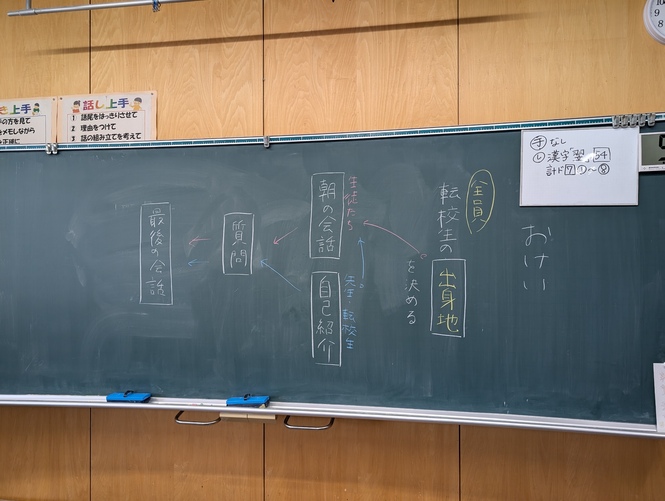 おけい
全員
転校生の
出身地
を決める
生徒たち
朝の会話
先生・転校生
自己紹介
質問
最後の会話
手 なし
し 漢字「翌」54
計ド 7 ①〜⑧
話し上手
1 語尾をはっきりさせて
2 理由をつけて
3 話の組み立てを考えて
き上手
の方を見て
をメモしながら
正確に